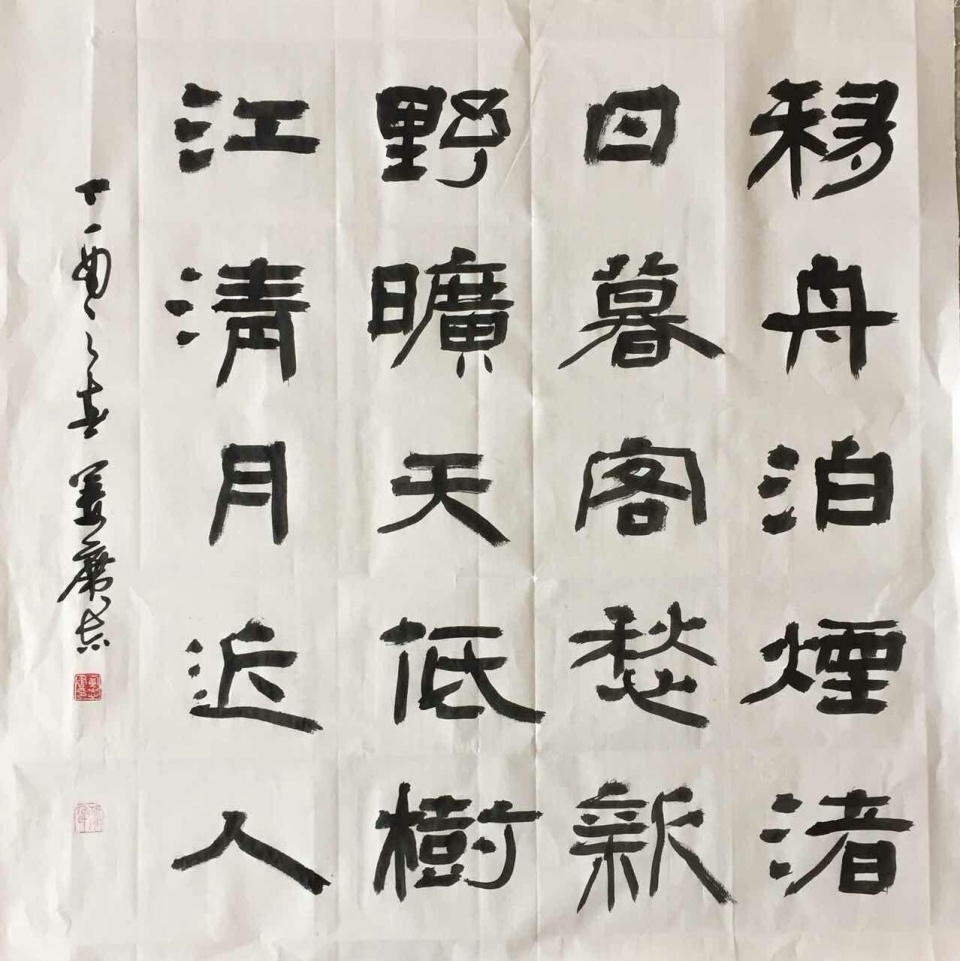 移舟泊煙渚
日暮客愁新
野曠天低樹
江清月近人
丁酉之春姜廣志